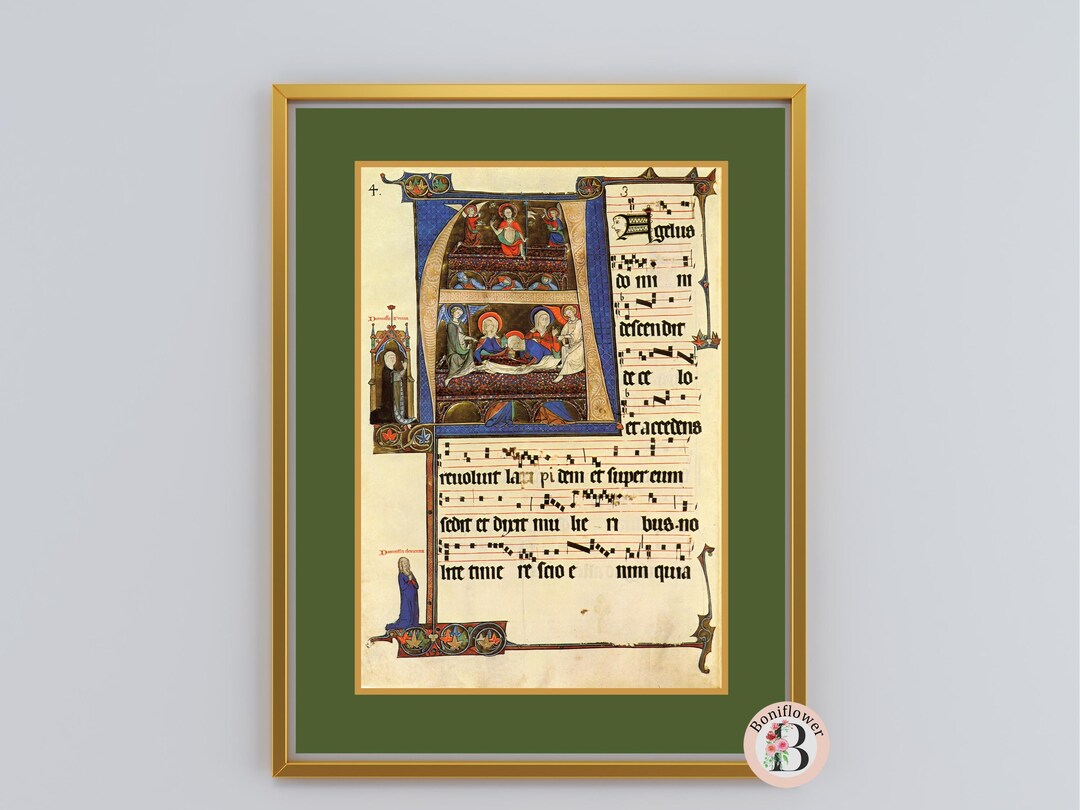 4.
3
Agelus
do mi ni
descendit
de ce lo·
et accedens
reuoluit la pi dem et super eum
sedit et dixit mu lie ri bus·no
lite time re scio e nim quia
Boniflower
B